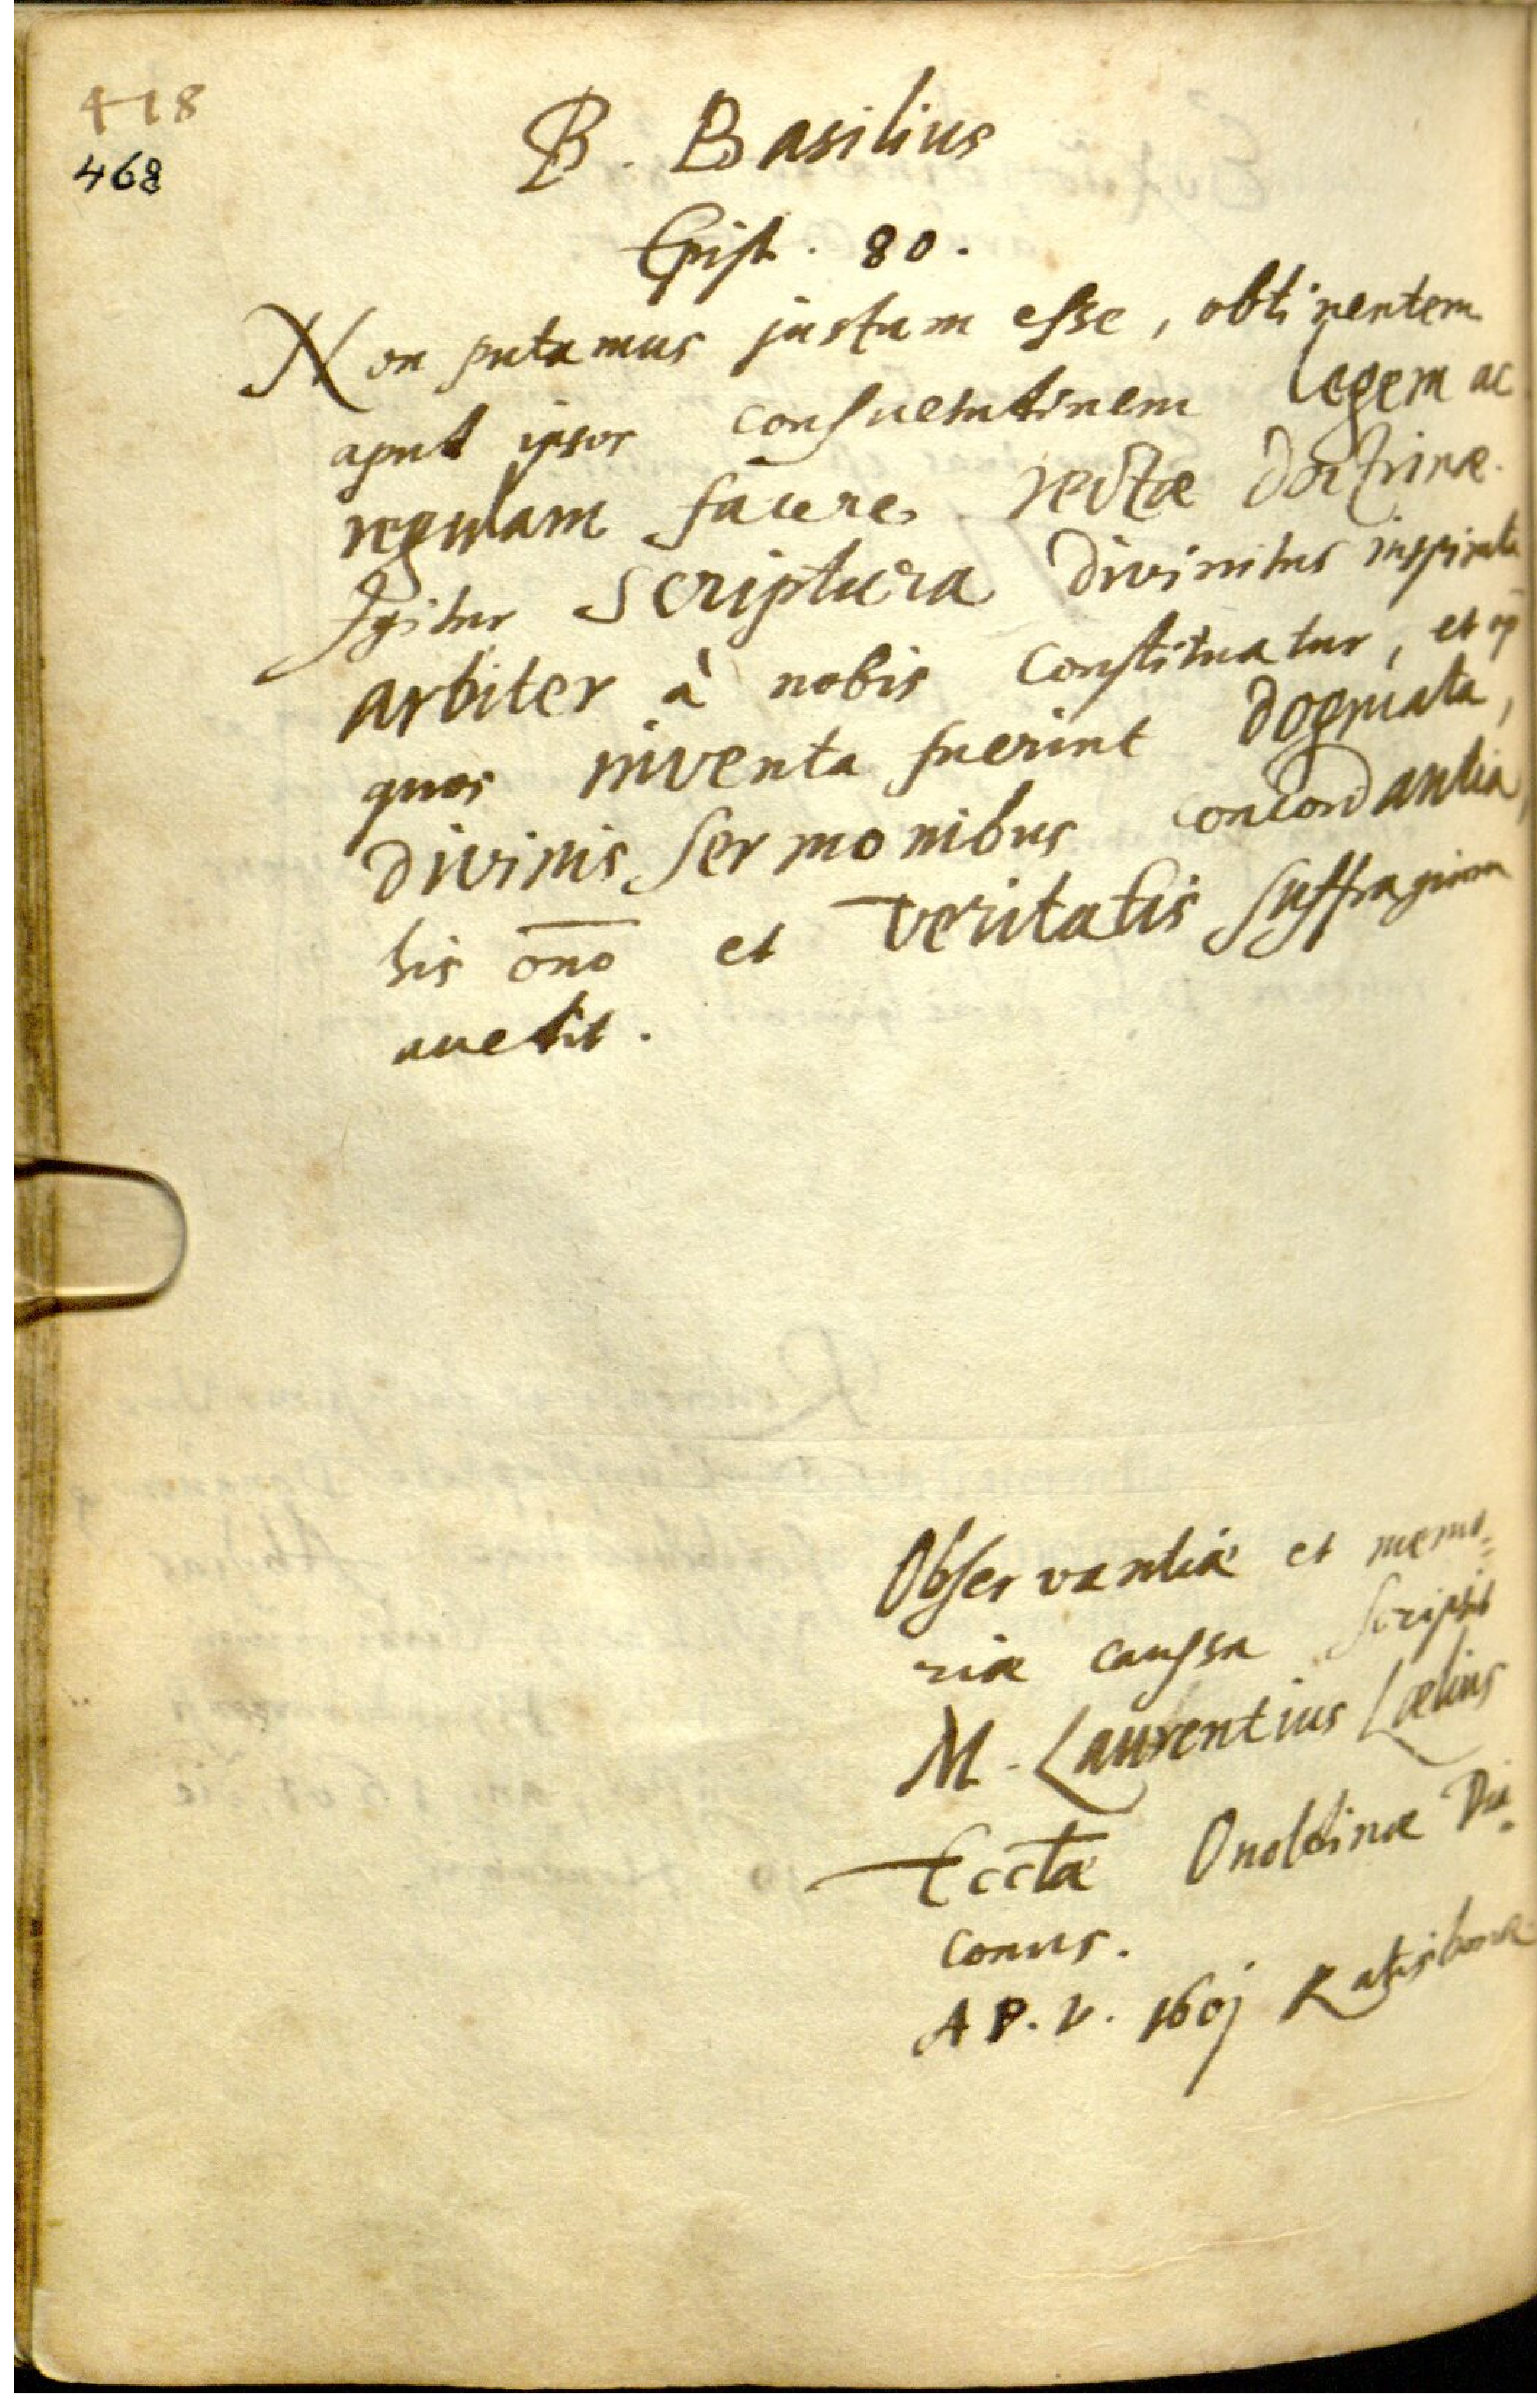 418
468
B. Basilius
Epist. 80.
Non putamus justam esse, obtinentem
apud ipsos consuetudinem legem ac
regulam facere rectæ doctrinæ.
Igitur scriptura divinitus inspirata
arbiter à nobis constituatur, et ap̄
quos inventa fuerint dogmata,
divinis sermonibus concordantia,
his om̅o et veritatis suffragium
accedit.
Observantiæ et memo=
riæ caussa scripsit
M. Laurentius Lælius
Eccl̅æ Onoldinæ Dia=
conus.
A P. V. 160j Ratisbonæ